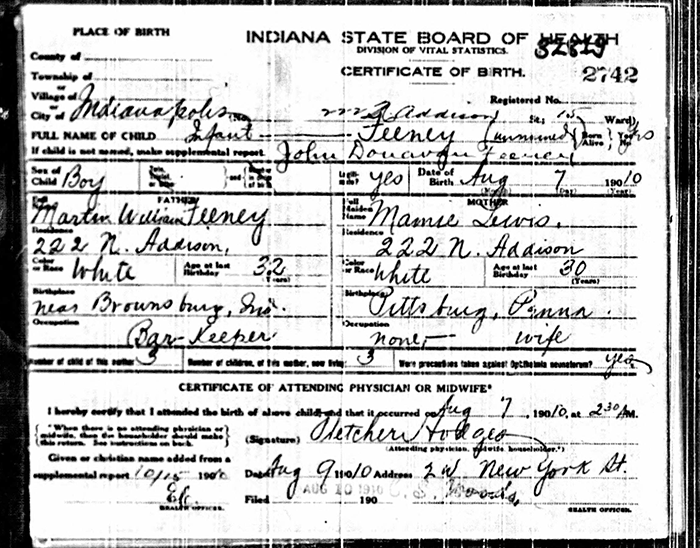 PLACE OF BIRTH
INDIANA STATE BOARD OF HEALTH
DIVISION OF VITAL STATISTICS.
CERTIFICATE OF BIRTH.
2742
County of
Township of
or
Village of
or
City of Indianapolis (No. Addison St.; 15 Ward)
Registered No.
FULL NAME OF CHILD Infant Feeney (unnamed) Born Alive Yes
If child is not named, make supplemental report. John Donavan Feeney
Sex of Child Boy
and
Legitimate? yes
Date of Birth Aug 7 19010
(Month) (Day) (Year)
FATHER
Full Name Martin William Feeney
Residence 222 N. Addison,
Color or Race White
Age at last Birthday 32 (Years)
Birthplace near Brownsburg, Ind.
Occupation Bar Keeper
MOTHER
Full Maiden Name Mamie Lewis.
Residence 222 N. Addison
Color or Race White
Age at last Birthday 30 (Years)
Birthplace Pittsburg, Penna.
Occupation none, — wife
Number of child of this mother 3
Number of children, of this mother, now living 3
Were precautions taken against Ophthalmia neonatorum? yes
CERTIFICATE OF ATTENDING PHYSICIAN OR MIDWIFE*
I hereby certify that I attended the birth of above child and that it occurred on Aug 7, 19010, at 2 30 A M.
{*When there is no attending physician or midwife, then the householder should make this return. See instructions on back.}
(Signature) Fletcher Hodges
(Attending physician, midwife, householder.*)
Given or christian name added from a
supplemental report 10/15 190
HEALTH OFFICER.
Dated Aug 9 19010 Address 2 W. New York St.
Filed AUG 10 1910 190
HEALTH OFFICER.